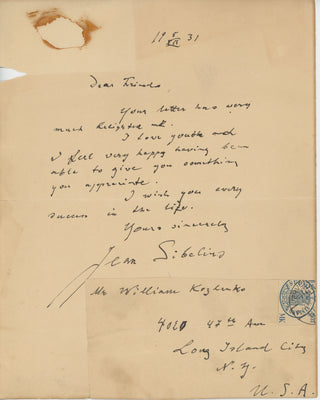 19 5/XII 31
Dear Friends
Your letter has very
much delighted me.
I love youth and
I feel very happy having been
able to give you something
you appreciate.
I wish you every
success in the life.
Yours sincerely
Jean Sibelius
Mr William Kozlenko
4020 47th Ave
Long Island City
N.Y.
U.S.A.